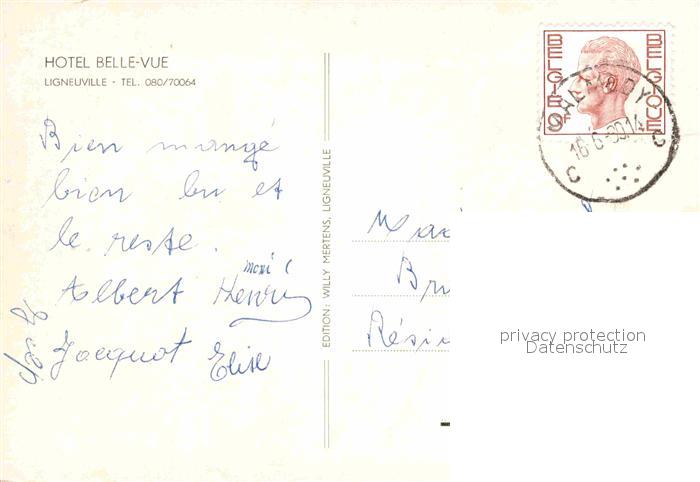 HOTEL BELLE-VUE
LIGNEUVILLE - TEL. 080/70064
Bien mangé
bien bu et
le reste.
Albert Henri
Jacquot Elise
EDITION: WILLY MERTENS, LIGNEUVILLE
BELGIË BELGIQUE
9F
MALMEDY
16-6-80 14
C C
Bru
Rési
privacy protection
Datenschutz